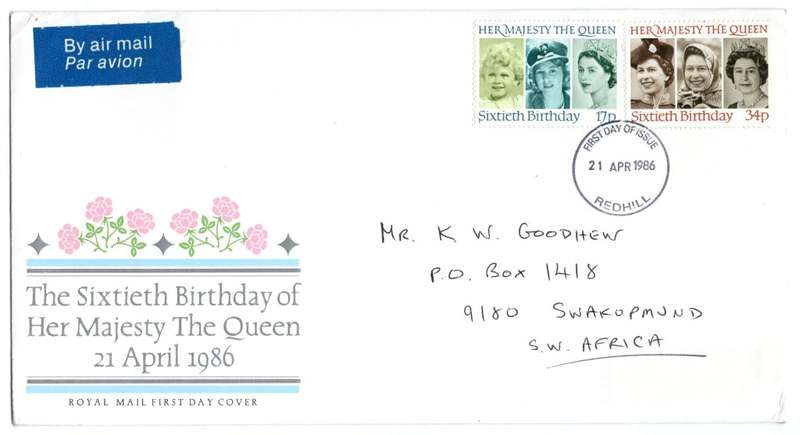 By air mail
Par avion
HER MAJESTY THE QUEEN
Sixtieth Birthday 17p
HER MAJESTY THE QUEEN
Sixtieth Birthday 34p
FIRST DAY OF ISSUE
21 APR 1986
REDHILL
MR. K W. GOODHEW
P.O. BOX 1418
9180 SWAKOPMUND
S.W. AFRICA
The Sixtieth Birthday of
Her Majesty The Queen
21 April 1986
ROYAL MAIL FIRST DAY COVER